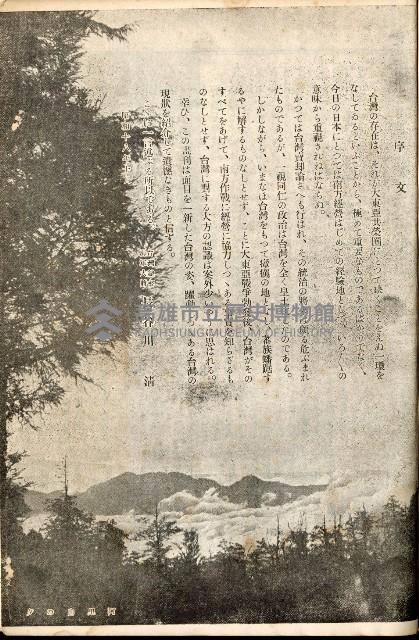 序文
台灣の存在は、それが大東亞共榮圈にとつて缺くことをえぬ一環を
なしてゐるといふことから、極めて重要なものであるばかりでな
今日の日本にとつては南方經營はじめての經驗地として、いろいろの
意味から重視されねばならぬ。
かつては台灣賣却論さへも行はれ、その統治の將來を頗る危ぶまれ
たものであるが、一視同仁の政治は台灣を全く皇土
たのである。
しかしながら、いまなほ台灣をもつて瘴癘の地となし、蕃族蟠踞す
るやに解するものなしとせず、ことに大東亞戰爭勃發後、台灣がその
すべてをあげて、南方作戰に經營に協力しつゝある
知らざるも
のなしとせず、台灣に對する大方の認識は案外少い
思はれる。
幸ひ、この畫刊は面目を一新した台灣の姿、躍動
ある台灣の
現狀を紹介して遺憾なきものと信ずる。
一言述ぶる所以である。
長谷川 清
高雄市立歷史博物館
KAOHSIUNG MUSEUM OF HISTORY
阿里山の夕